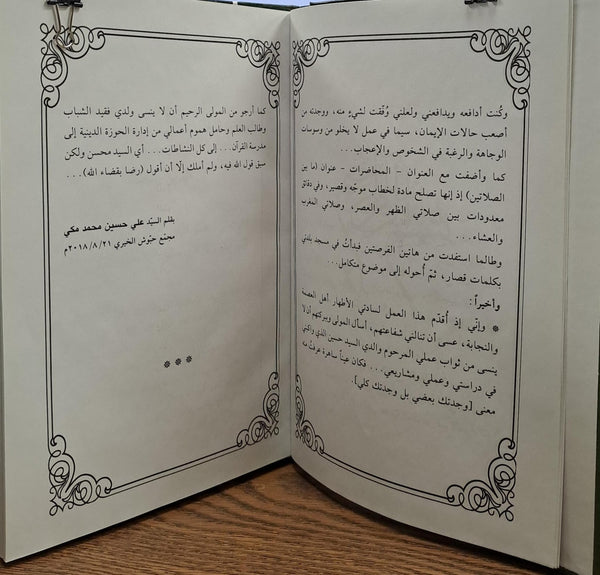 وكُنت أدافعه ويدافعني ولعلني وُفّقت لشيءٍ منه، ووجدته من
أصعب حالات الإيمان، سيما في عمل لا يخلو من وسوسات
الوجاهة والرغبة في الشخوص والإعجاب...
كما وأضفت مع العنوان - المحاضرات - عنوان (ما بين
الصلاتين) إذ إنها تصلح مادة لخطاب موجّه وقصير، وفي دقائق
معدودات بين صلاتي الظهر والعصر، وصلاتي المغرب
والعشاء...
وطالما استفدت من هاتين الفرصتين فبدأتُ في مسجد بلدتي
بكلمات قصار، ثمّ أُحوله إلى موضوع متكامل...
وأخيراً:
* وإنّي إذ أُقدّم هذا العمل لسادتي الأطهار أهل العصمة
والنجابة، عسى أن تنالني شفاعتهم، أسأل المولى وببركتهم أن لا
ينسى من ثواب عملي المرحوم والدي السيد حسين الذي واكبني
في دراستي وعملي ومشاريعي... فكان عيناً ساهرة عرفتُ منه
معنى [وجدتك بعضي بل وجدتك كلي].
كما أرجو من المولى الرحيم أن لا ينسى ولدي فقيد الشباب
وطالب العلم وحامل هموم أعمالي من إدارة الحوزة الدينية إلى
مدرسة القرآن... إلى كل النشاطات... أي السيد محسن ولكن
سبق قول الله فيه، ولم أملك إلّا أن أقول (رضا بقضاء الله)...
بقلم السيّد علي حسين محمد مكي
مجمّع حبّوش الخيري ٢٠١٨/٨/٢١م
* * *